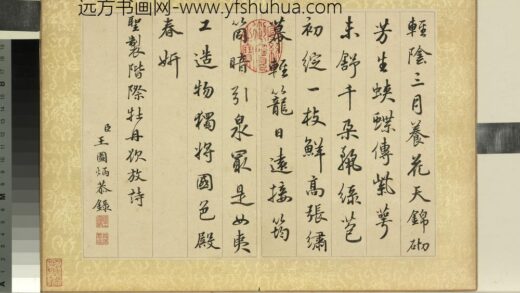 远方书画网-www.yfshuhua.com
輕陰三月養花天錦砌
芳生蛺蝶傳紫萼
未舒千朵飄綠苞
初綻一枝鮮高張繡
幕輕籠日遠接筠
筒暗引泉最是女夷
工造物獨將國色殿
春妍
聖製階際牡丹欲放詩
臣王圖炳恭錄